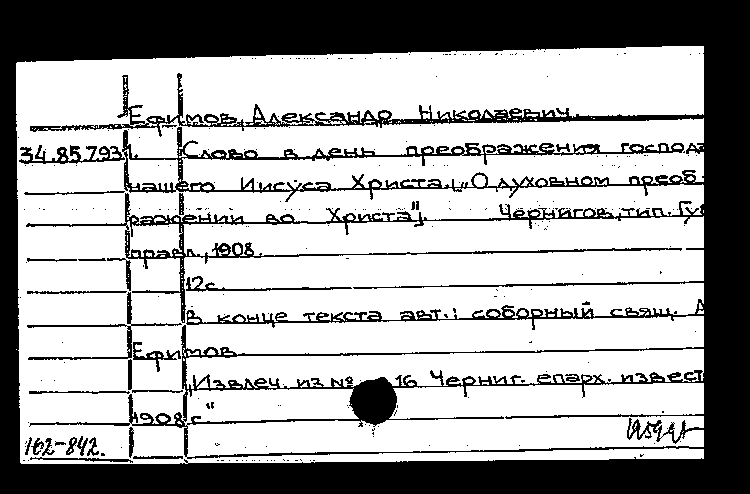 Ефимов, Александр Николаевич.
34.85.793. Слово в день преображения господа
нашего Иисуса Христа. [„О духовном преоб-
ражении во Христа"]. Чернигов, тип. Губ
правл., 1908.
12с.
В конце текста авт.: соборный свящ. А
Ефимов.
„Извлеч. из № 16 Черниг. епарх. извест
1908 г."
162-842.